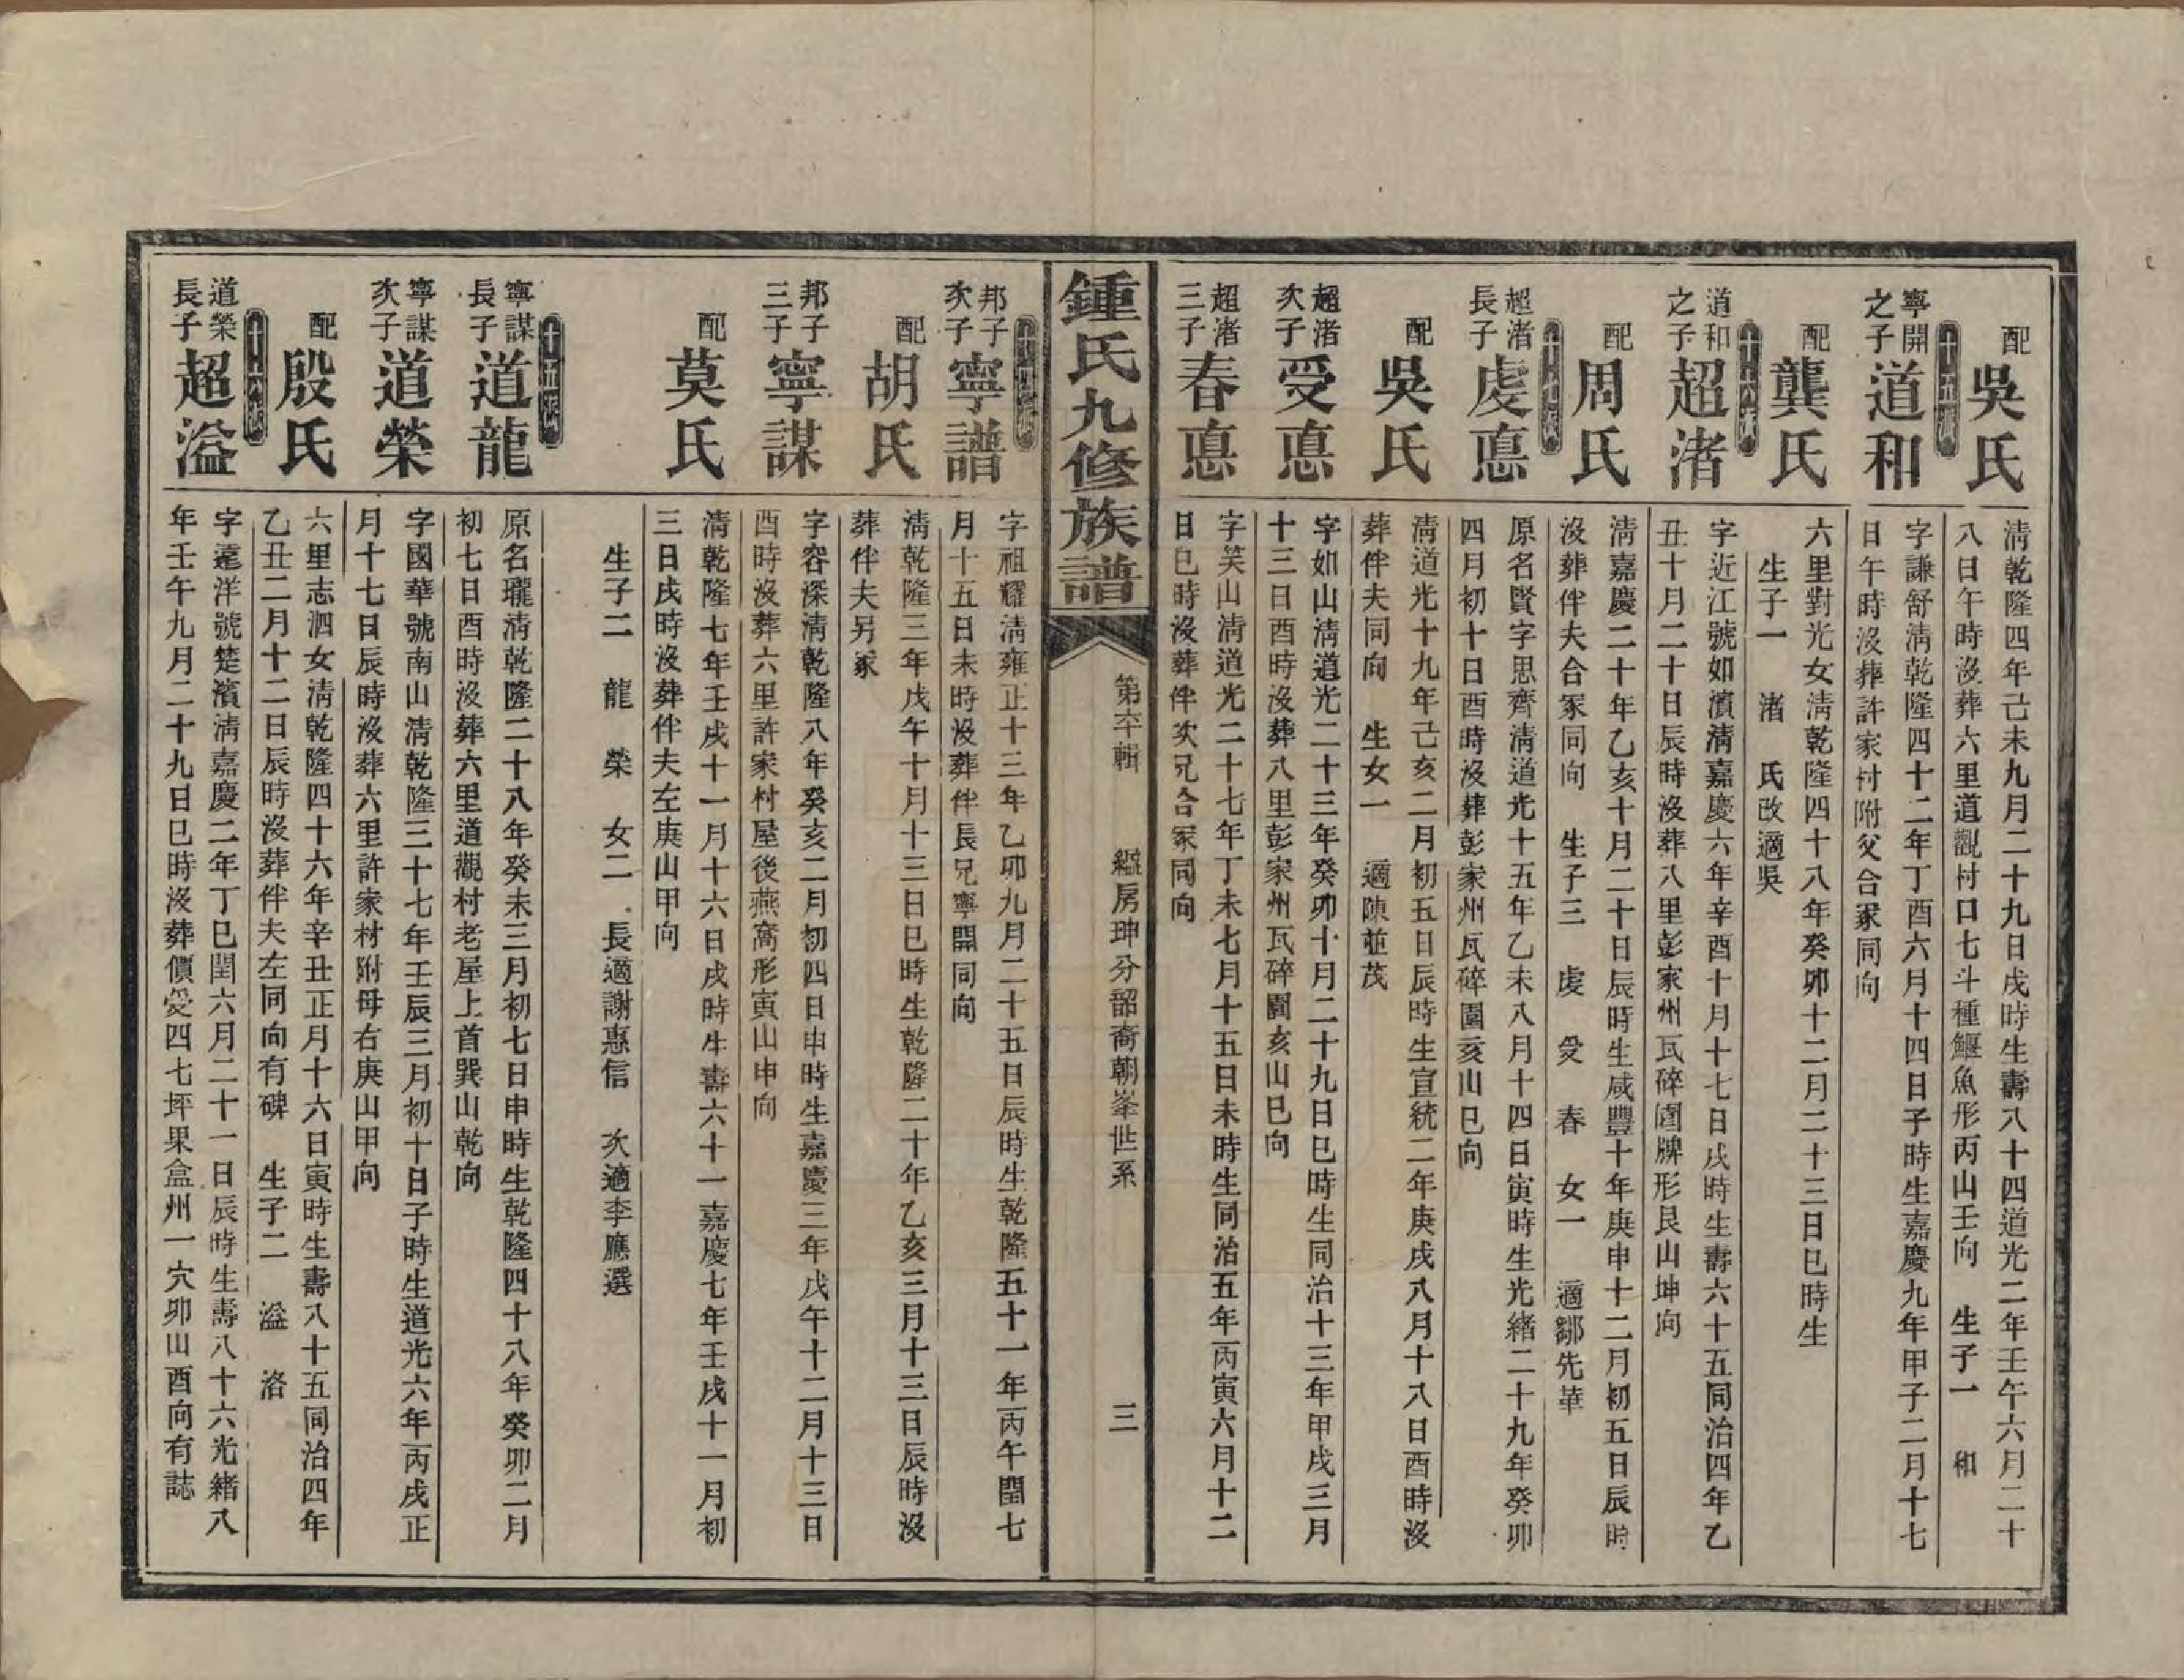 配
吳氏
清乾隆四年己未九月二十九日戌時生壽八十四道光二年壬午六月二十
八日午時沒葬六里道觀村口七斗種鰋魚形丙山壬向 生子一 和
十五派
寧開
之子
道和
字謙舒清乾隆四十二年丁酉六月十四日子時生嘉慶九年甲子二月十七
日午時沒葬許家村附父合冢同向
配
龔氏
六里對光女清乾隆四十八年癸卯十二月二十三日巳時生
生子一 渚 氏改適吳
十六派
道和
之子
超渚
字近江號如濱清嘉慶六年辛酉十月十七日戌時生壽六十五同治四年乙
丑十月二十日辰時沒葬八里彭家州瓦碎圍牌形艮山坤向
配
周氏
清嘉慶二十年乙亥十月二十日辰時生咸豐十年庚申十二月初五日辰時
沒葬伴夫合冢同向 生子三 虔 受 春 女一 適鄒先華
十七派
超渚
長子
虔惪
原名賢字思齊清道光十五年乙未八月十四日寅時生光緒二十九年癸卯
四月初十日酉時沒葬彭家州瓦碎圍亥山巳向
配
吳氏
清道光十九年己亥二月初五日辰時生宣統二年庚戌八月十八日酉時沒
葬伴夫同向 生女一 適陳並茂
超渚
次子
受惪
字如山清道光二十三年癸卯十月二十九日巳時生同治十三年甲戌三月
十三日酉時沒葬八里彭家州瓦碎圍亥山巳向
超渚
三子
春惪
字笑山清道光二十七年丁未七月十五日未時生同治五年丙寅六月十二
日巳時沒葬伴次兄合冢同向
鍾氏九修族譜
第六輯 繼房珅分韶裔朝峯世系
三
十四派
邦子
次子
寧譜
字祖耀清雍正十三年乙卯九月二十五日辰時生乾隆五十一年丙午閏七
月十五日未時沒葬伴長兄寧開同向
配
胡氏
清乾隆三年戊午十月十三日巳時生乾隆二十年乙亥三月十三日辰時沒
葬伴夫另冢
邦子
三子
寧謀
字容深清乾隆八年癸亥二月初四日申時生嘉慶三年戊午十二月十三日
酉時沒葬六里許家村屋後燕窩形寅山申向
配
莫氏
清乾隆七年壬戌十一月十六日戌時生壽六十一嘉慶七年壬戌十一月初
三日戌時沒葬伴夫左庚山甲向
生子二 龍 榮 女二 長適謝惠信 次適李應選
十五派
寧謀
長子
道龍
原名瓏清乾隆二十八年癸未三月初七日申時生乾隆四十八年癸卯二月
初七日酉時沒葬六里道觀村老屋上首巽山乾向
寧謀
次子
道榮
字國華號南山清乾隆三十七年壬辰三月初十日子時生道光六年丙戌正
月十七日辰時沒葬六里許家村附母右庚山甲向
配
殷氏
六里志泗女清乾隆四十六年辛丑正月十六日寅時生壽八十五同治四年
乙丑二月十二日辰時沒葬伴夫左同向有碑 生子二 溢 洛
十六派
道榮
長子
超溢
字遠洋號楚濱清嘉慶二年丁巳閏六月二十一日辰時生壽八十六光緒八
年壬午九月二十九日巳時沒葬價受四七坪果盒州一穴卯山酉向有誌